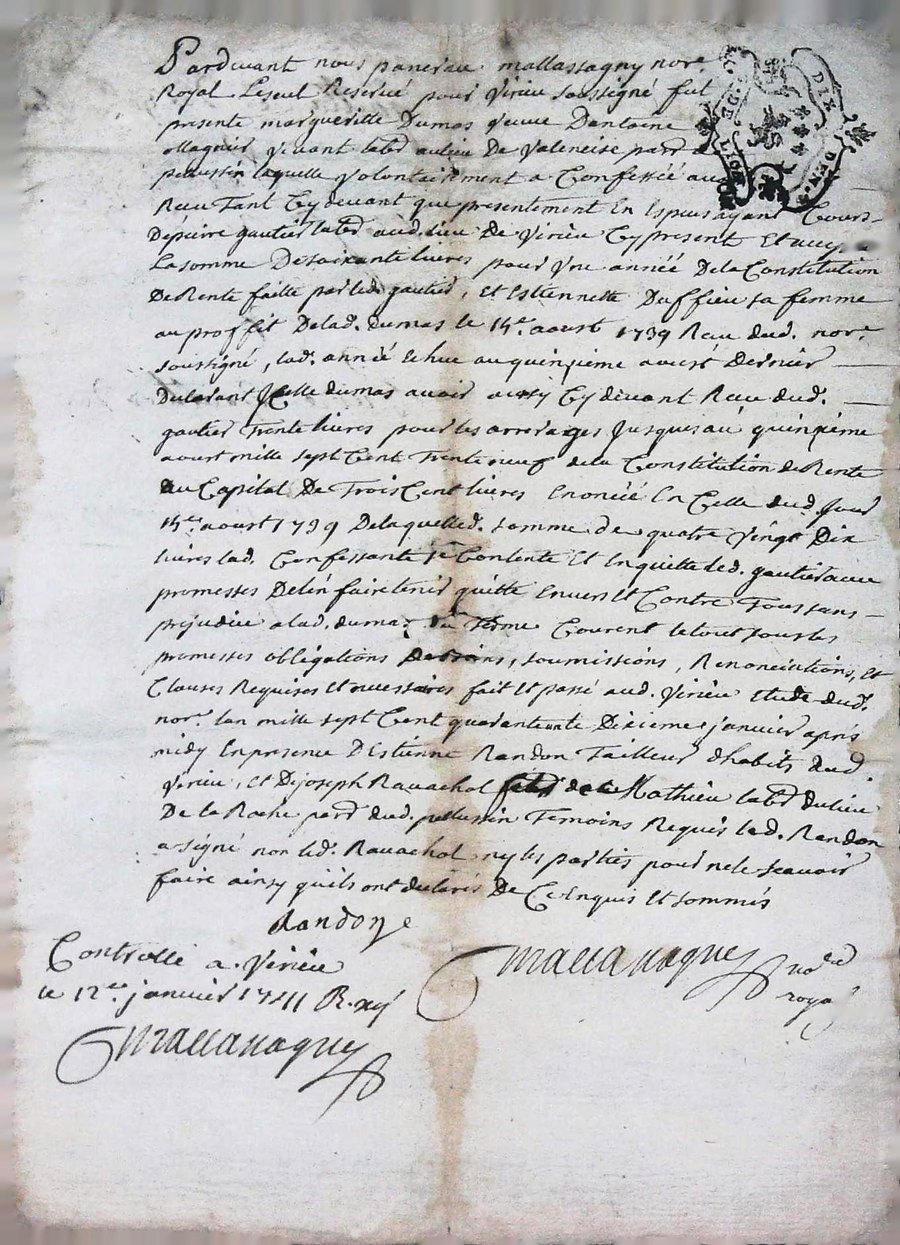 Pardevant nous pancrace mallassagny nore
Royal Leseul Reservé pour Virieu soussigné fut
presente margueritte Dumas veuve Dantoine
ollagnier vivant labr aulieu De Valencise parr de
peaussin laquelle volontairement a Confessée avoir
Receu Tant Cydevant que presentement En Espuis ayant Cours
Depierre gautier labr aud. lieu De Virieu Cy present Et acc.
La somme Desoixante livres pour Une année Dela Constitution
De Rente faitte par led. gautier, Et Estiennette Duffieu sa femme
au proffit Delad. dumas le 15e. aoust 1739 Receu dud. nore
soussigné, lad. année Echue au quinzieme aoust Dernier
Declarant Jcelle dumas avoir aussy Cy devant Receu dud.
gautier Trente livres pour les arrerages Jusques au quinzième
aoust mille sept Cent Trente neuf de la Constitution de Rente
Du Capital De Trois Cent livres Enoncée En Celle dud. Jour
15e. aoust 1739 Delaquelle d. somme de quatre vingt Dix
livres lad. Confessante se Contente Et Enquitte led. gautier avec
promesses Del'en faire tenir quitte Envers Et Contre Tous sans
prejudice alad. dumas du Terme Courent le tout sous les
promesses obligations De biens, soumissions, Renonciations, Et
Clauses Requises Et necessaires fait Et passé aud. Virieu Etude dud.
nore. lan mille sept Cent quarante un Dixieme janvier après
midy En presence D'Estienne Randon Tailleur d'habits dud.
Virieu, Et De joseph Ravachol fils de Mathieu labr du lieu
De la Roche parr dud. pellussin Temoins Requis led. Randon
a signé non led. Ravachol ny les parties pour ne le scavoir
faire ainsy quils ont declarés De Ce Enquis Et sommés
Randon
Controllé a Virieu
le 12e janvier 1741 R. xij s
mallassagny nore
royal
mallassagny
DIX DEN.